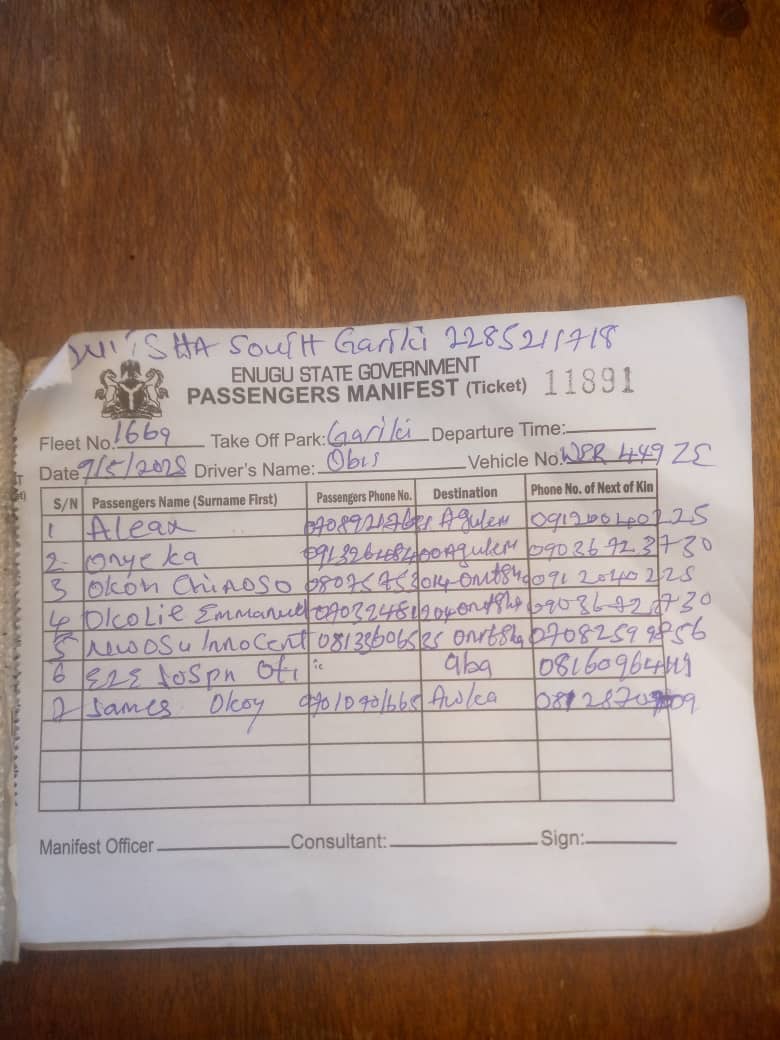 SHA South Gariki 2285211718
ENUGU STATE GOVERNMENT
PASSENGERS MANIFEST (Ticket) 11891
Fleet No. 1669 Take Off Park: Gariki Departure Time:
Date 9/5/2025 Driver's Name: Obis Vehicle No. WPR 449 ZE
S/N Passengers Name (Surname First) Passengers Phone No. Destination Phone No. of Next of Kin
1 Aleax Agulem 09120040225
2 Onyeka Agulem 09036723730
3 Okon Chinoso 0912040225
4 Okolie Emmanuel 09036723730
5 Nwosu Innocent 08133606535 07082599856
6 EZE Jospn Ofi " aba
7 James Okoy 07010701665 Awka
Manifest Officer Consultant: Sign: